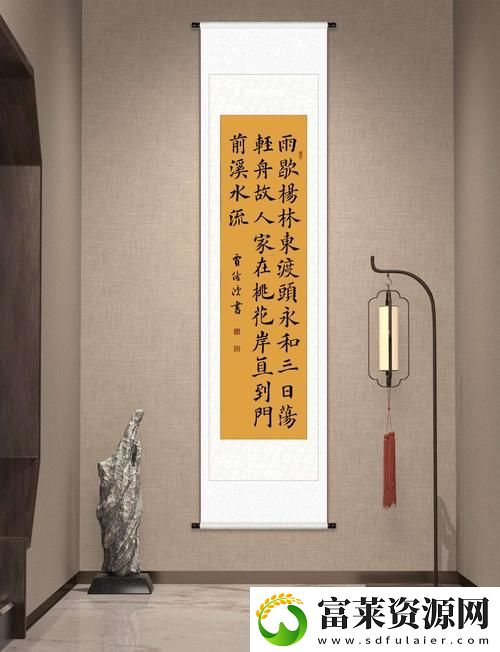 雨歇楊林東渡頭永和三日蕩
輕舟故人家在桃花岸直到門
前溪水流
書
富莱资源网
www.sdfulaier.com